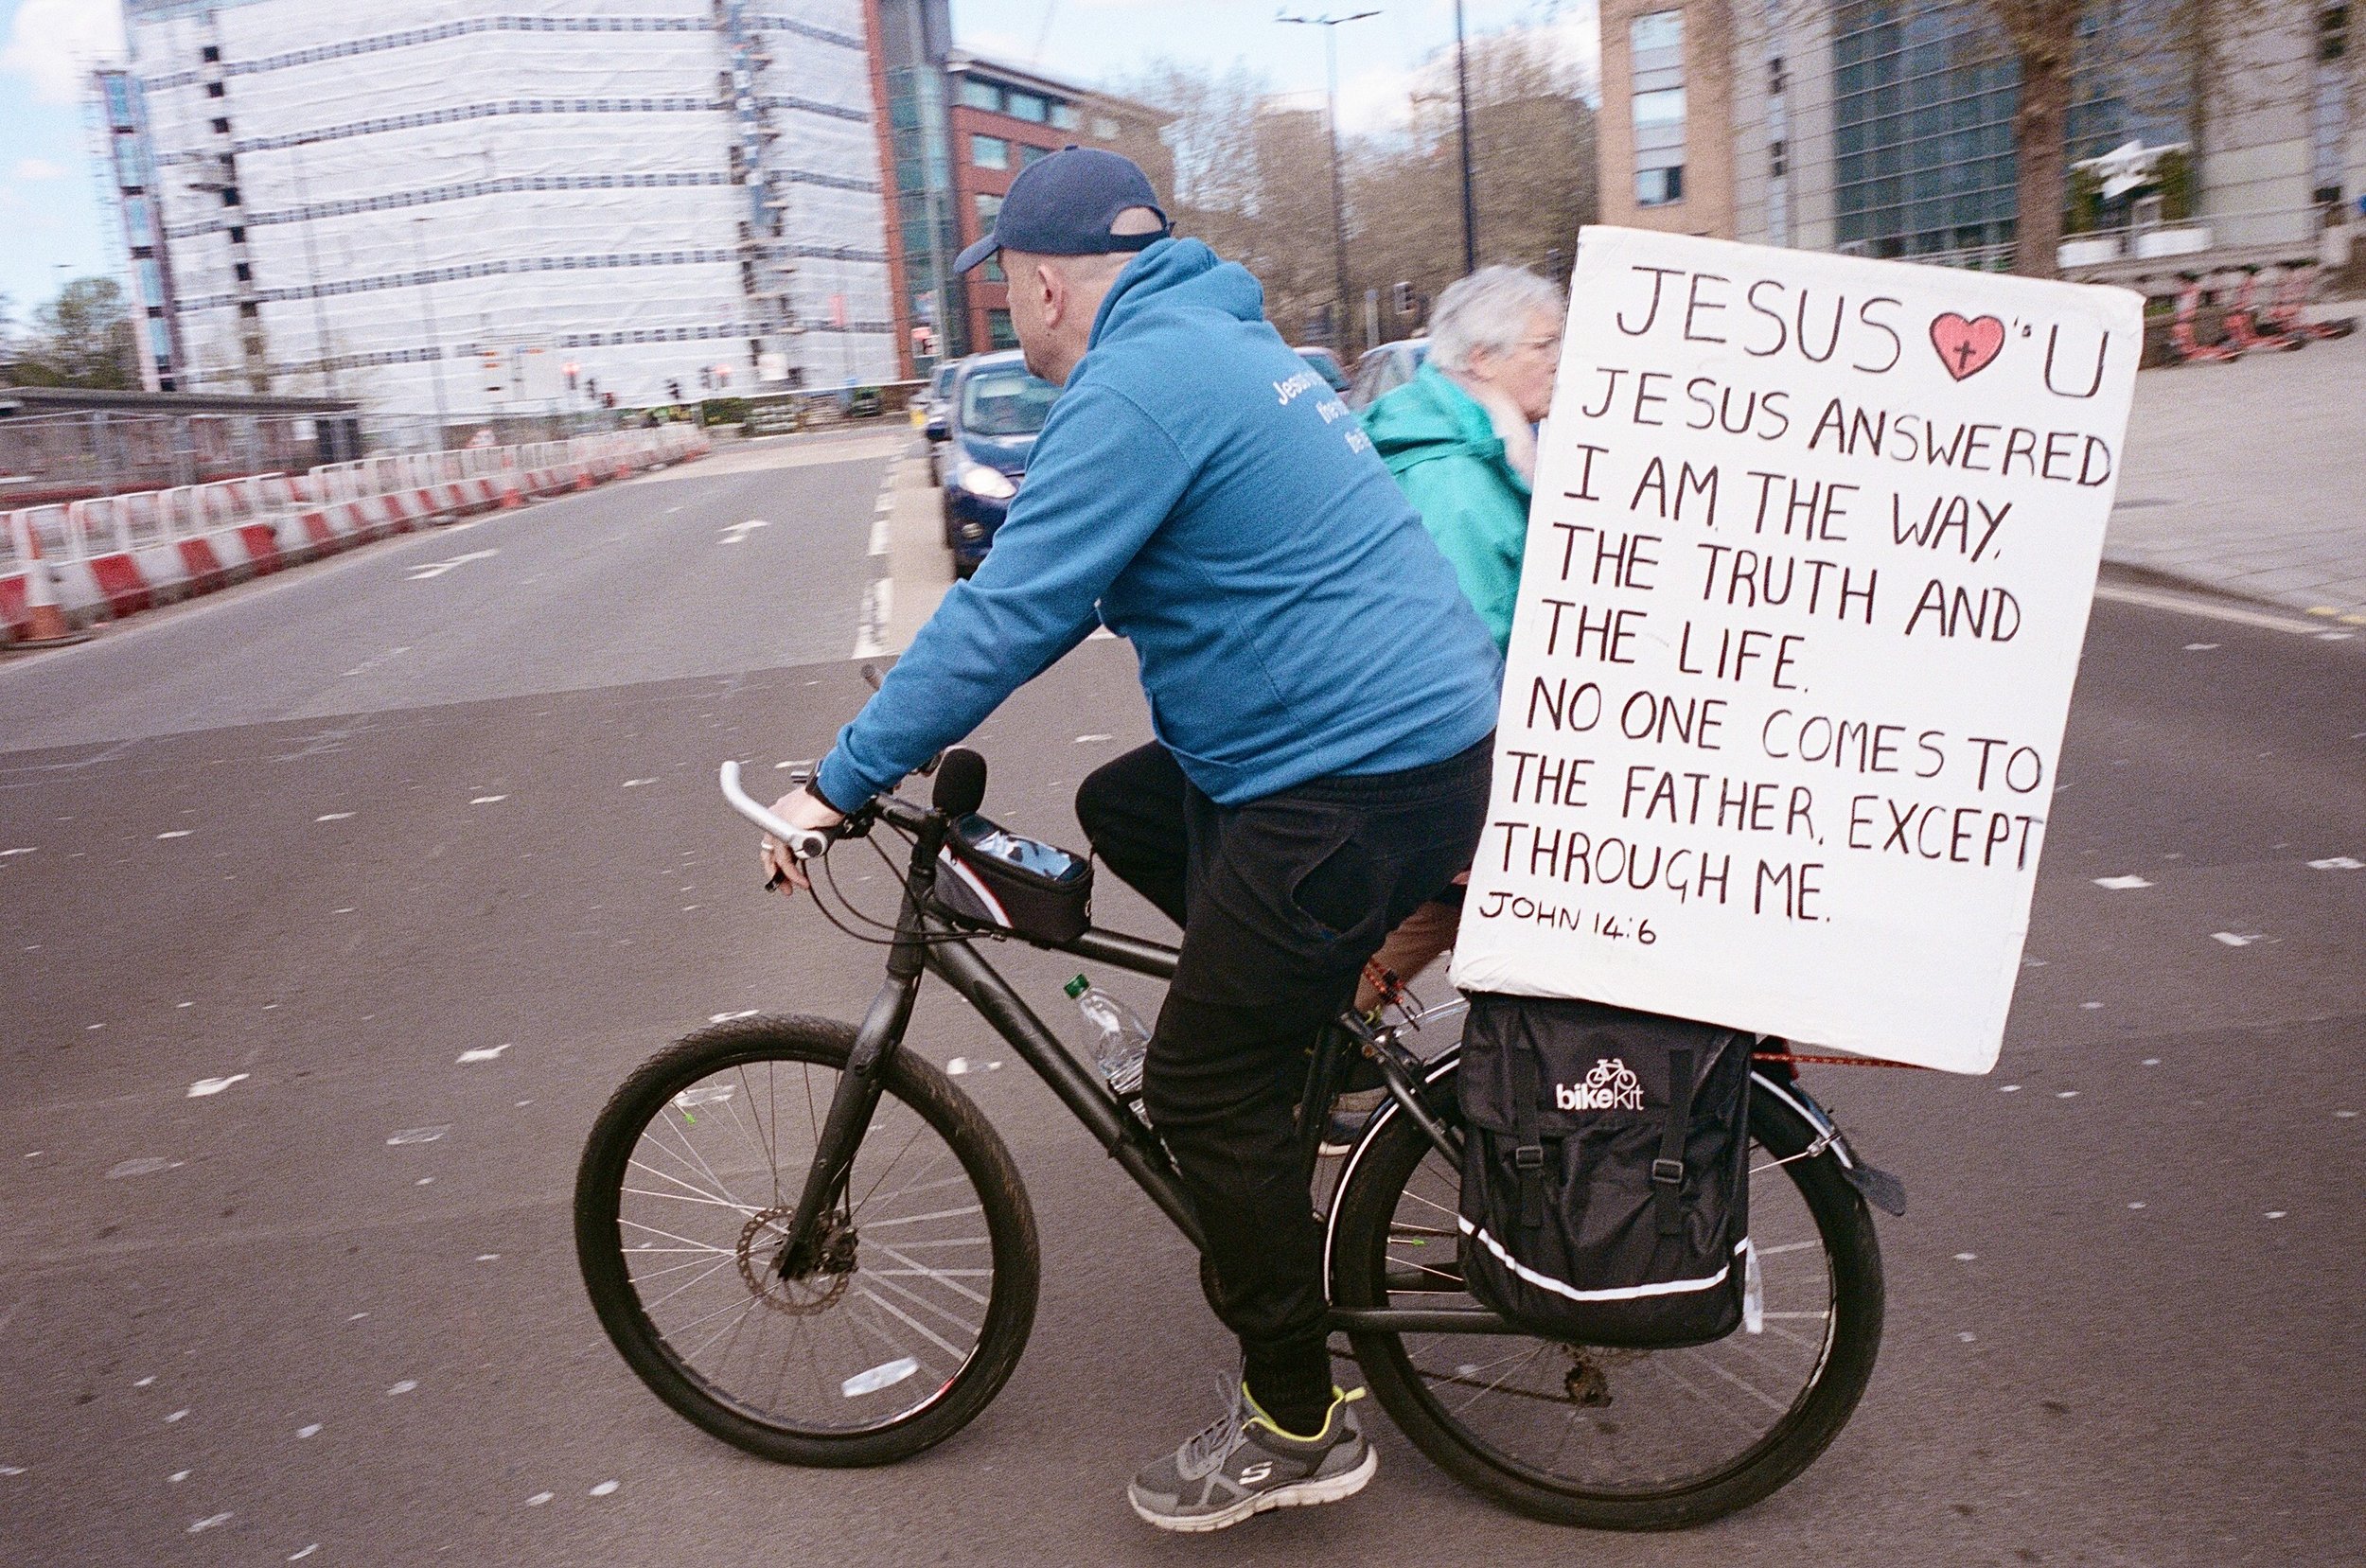 JESUS ❤'s U
JESUS ANSWERED
I AM THE WAY.
THE TRUTH AND
THE LIFE.
NO ONE COMES TO
THE FATHER, EXCEPT
THROUGH ME.
JOHN 14:6
Jesus
the
bikekit
S